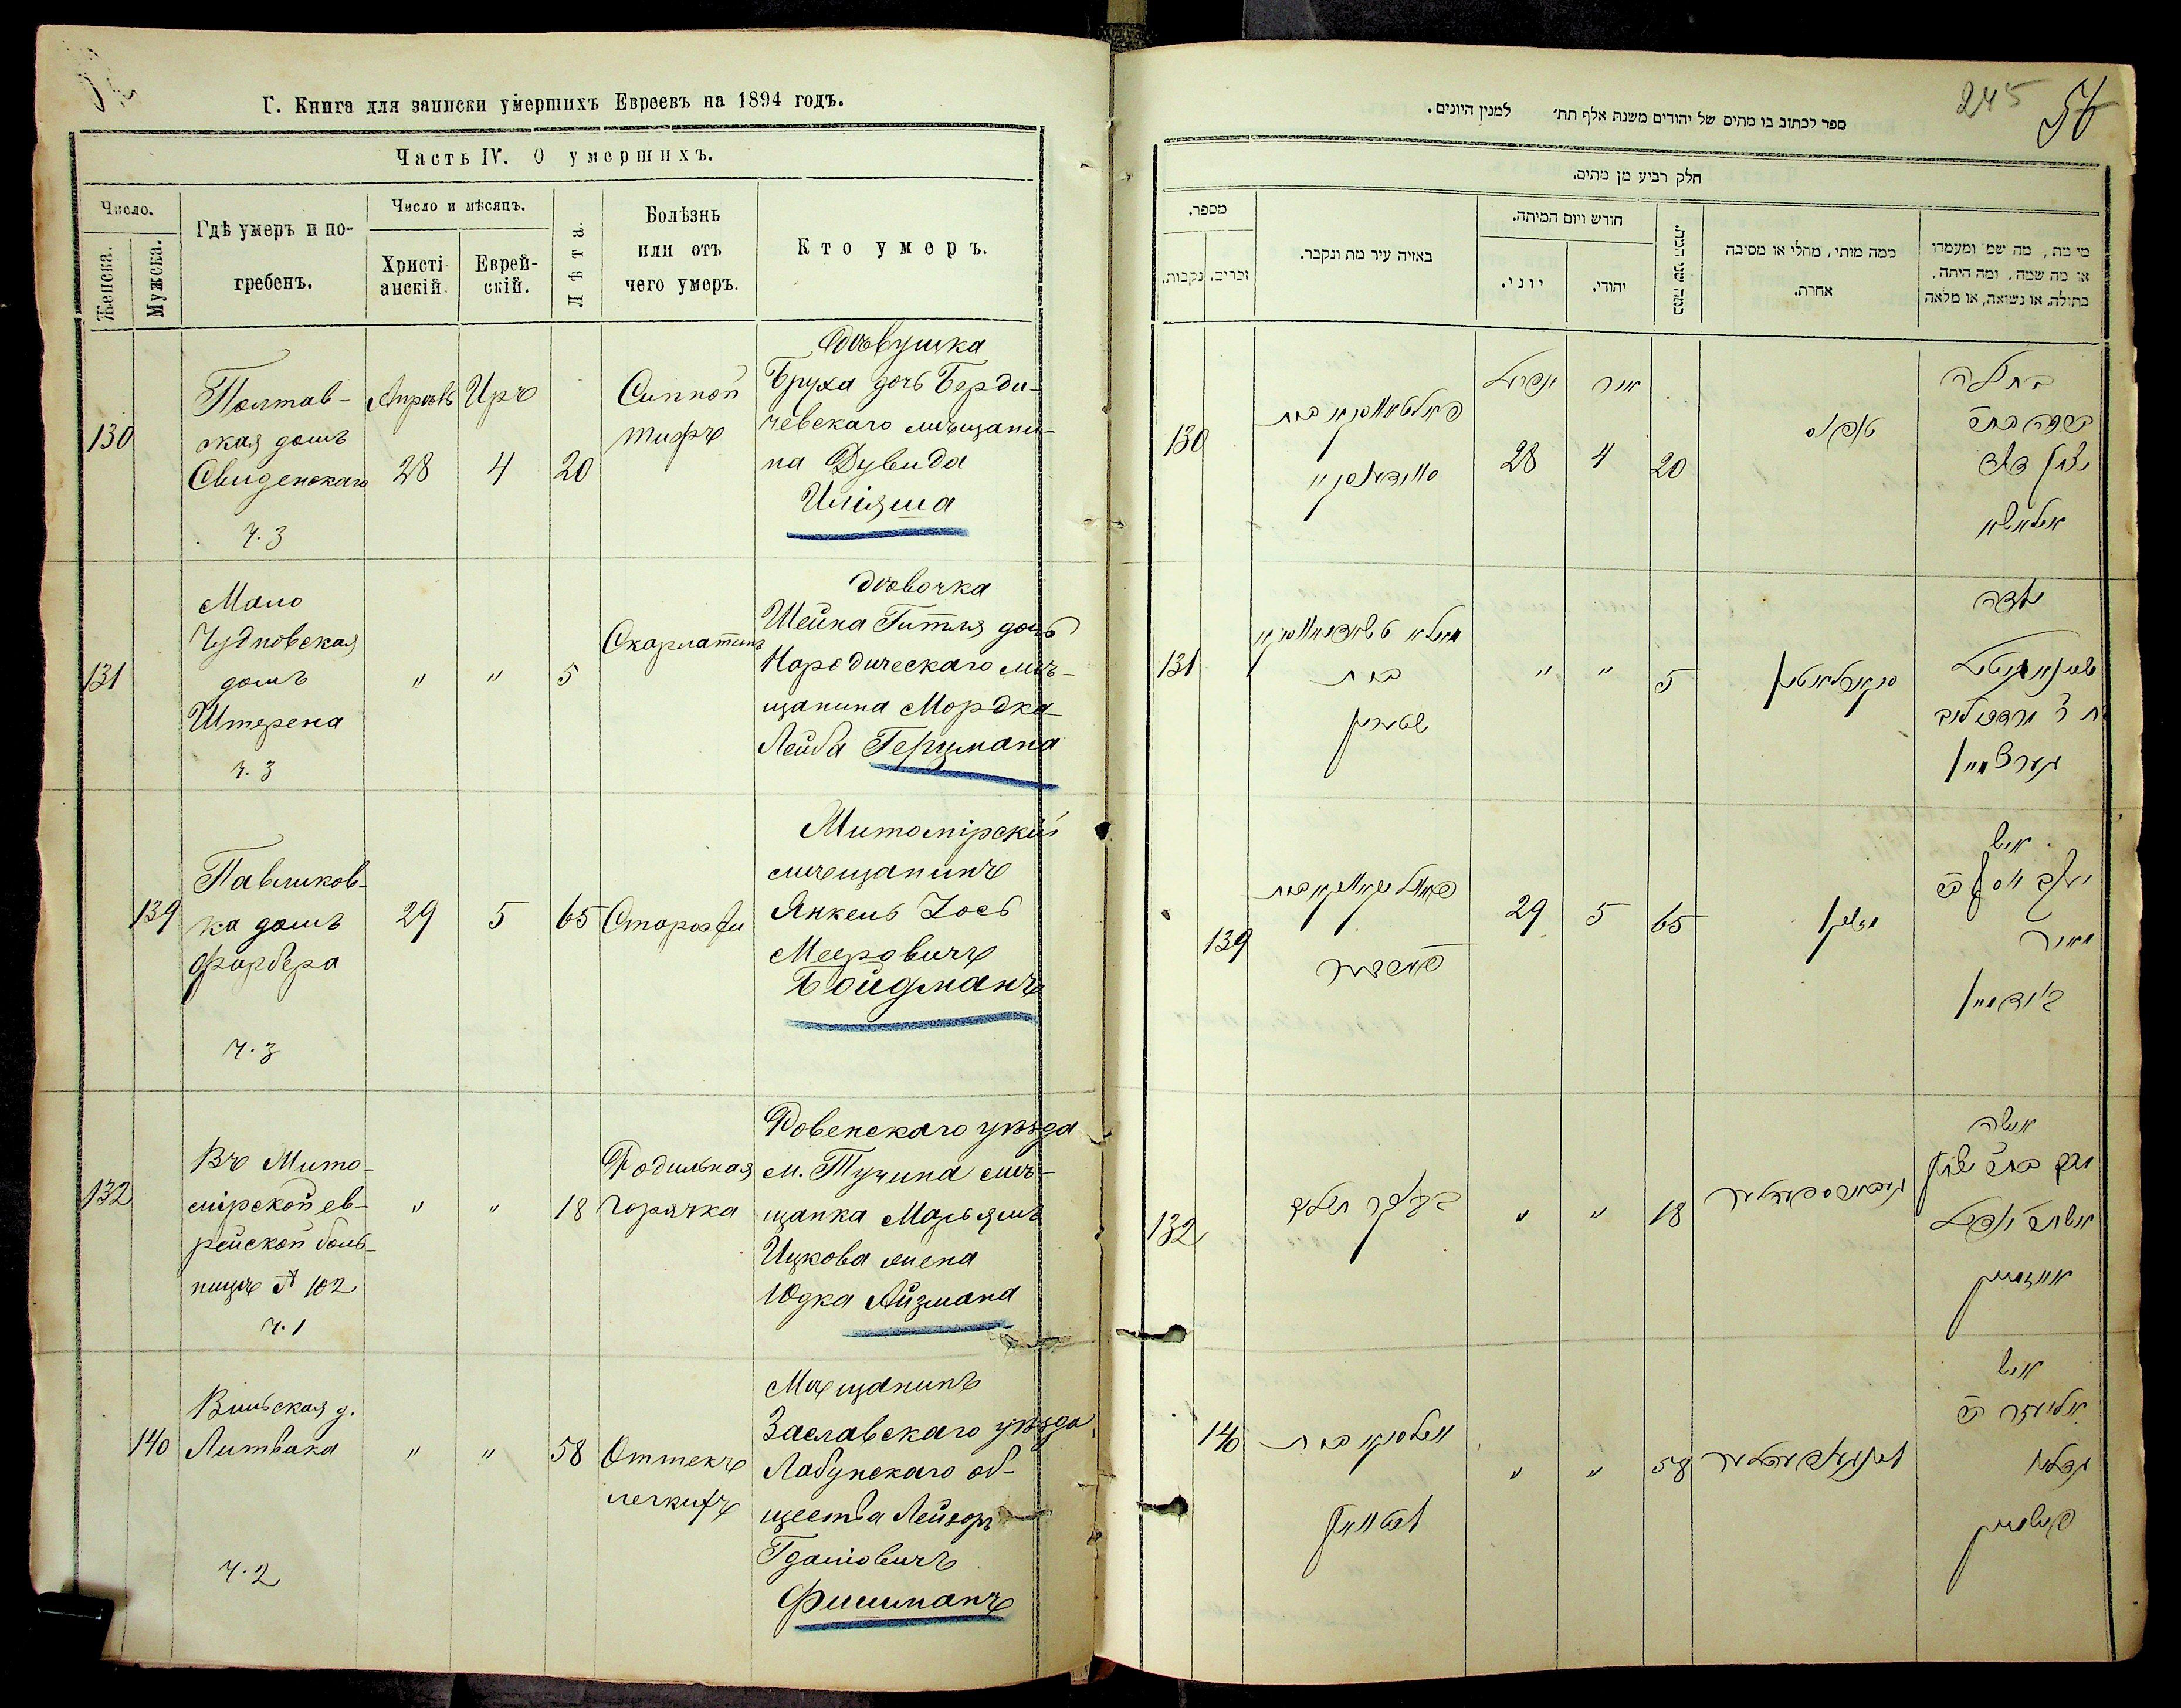 Г. Книга для записки умершихъ Евреевъ на 1894 годъ.
Часть IV. О умершихъ.
Число.
Женска.
Мужска.
Гдѣ умеръ и по-
гребенъ.
Число и мѣсяцъ.
Христі-
анскій.
Еврей-
скій.
Лѣта.
Болѣзнь
или отъ
чего умеръ.
Кто умеръ.
130
Полтав-
ская домъ
Свиденскаго
ч. 3
Апрѣль
28
Иръ
4
20
Сипной
тифъ
Дѣвушка
Бруха дочь Берди-
чевскаго мѣщани-
на Дувида
Иліяша
131
Мало
Чудновская
домъ
Штерена
ч. 3
"
"
5
Скарлатинъ
Дѣвочка
Шейна Гитля дочь
Народическаго мѣ-
щанина Мордка
Лейба Герцмана
139
Павликов-
ка домъ
Фарбера
ч. 3
29
5
65
Старости
Житомірскій
мѣщанинъ
Янкель Іось
Мееровичъ
Бойдманъ
132
Въ Жито-
мірской ев-
рейской боль-
ницѣ № 102
ч. 1
"
"
18
Родильная
горячка
Ровенскаго уѣзда
м. Тучина мѣ-
щанка Марьямъ
Ицкова жена
Юдка Айзмана
140
Вильская д.
Литвака
ч. 2
"
"
58
Оттекъ
легкихъ
Мѣщанинъ
Заславскаго уѣзда,
Лабунскаго об-
щества Лейзоръ
Гдаліовичъ
Фишманъ
245
56
ספר לכתוב בו מתים של יהודים משנת אלף תת׳ למנין היונים.
חלק רביע מן מתים.
מספר.
נקבות.
זכרים.
באיזה עיר מת ונקבר.
חודש ויום המיתה.
יוני.
יהודי.
כמה שני המת.
כמה מותי, מחלי או מסיבה
אחרת.
מי מת, מה שמו ומעמדו
או מה שמה, ומה היתה,
בתולה, או נשואה, או מלאה
130
אפריל
28
אייר
4
20
טיפוס
בתולה
איליאשא
131
שטערין
"
"
5
סקארלאטין
ילדה
הערצמאן
139
פארבער
29
5
65
זקן
איש
יעקב יוסף ב״ר
מאיר
בוידמאן
132
"
"
18
אשה
אייזמאן
140
ליטוואק
"
"
58
איש
אליעזר ב״ר
גדליה
פישמאן